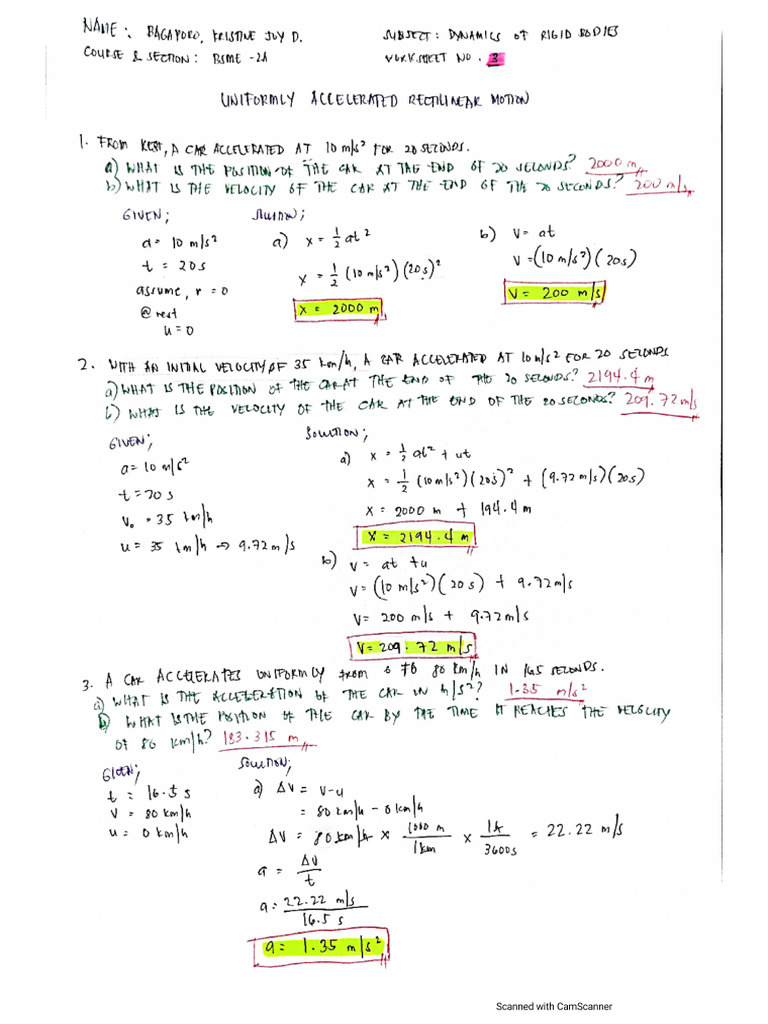 NAME: BAGAPORO, KRISTINE JOY D. SUBJECT: DYNAMICS OF RIGID BODIES
COURSE & SECTION: BSME -2A WORKSHEET NO. 3
UNIFORMLY ACCELERATED RECTILINEAR MOTION
1. FROM REST, A CAR ACCELERATED AT 10 m/s² FOR 20 SECONDS.
a) WHAT IS THE POSITION OF THE CAR AT THE END OF 20 SECONDS? 2000 m
b) WHAT IS THE VELOCITY OF THE CAR AT THE END OF THE 20 SECONDS? 200 m/s
GIVEN; Solution;
a = 10 m/s² a) x = 1/2 at² b) v = at
t = 20s x = 1/2 (10 m/s²)(20s)² v = (10 m/s²)(20s)
assume, r = 0 x = 2000 m v = 200 m/s
@ rest
u = 0
2. WITH AN INITIAL VELOCITY OF 35 km/h, A CAR ACCELERATED AT 10 m/s² FOR 20 SECONDS
a) WHAT IS THE POSITION OF THE CAR AT THE END OF THE 20 SECONDS? 2194.4 m
b) WHAT IS THE VELOCITY OF THE CAR AT THE END OF THE 20 SECONDS? 209.72 m/s
GIVEN; Solution;
a = 10 m/s² a) x = 1/2 at² + ut
t = 20 s x = 1/2 (10 m/s²)(20s)² + (9.72 m/s)(20s)
v₀ = 35 km/h x = 2000 m + 194.4 m
u = 35 km/h → 9.72 m/s x = 2194.4 m
b) v = at + u
v = (10 m/s²)(20s) + 9.72 m/s
v = 200 m/s + 9.72 m/s
v = 209.72 m/s
3. A CAR ACCELERATES UNIFORMLY FROM 0 TO 80 km/h IN 16.5 SECONDS.
a) WHAT IS THE ACCELERATION OF THE CAR IN m/s²? 1.35 m/s²
b) WHAT IS THE POSITION OF THE CAR BY THE TIME IT REACHES THE VELOCITY
OF 80 km/h? 183.315 m
GIVEN; Solution;
t = 16.5 s a) ΔV = V-u
v = 80 km/h = 80 km/h - 0 km/h
u = 0 km/h ΔV = 80 km/h × 1000 m/1 km × 1h/3600s = 22.22 m/s
a = ΔV/t
a = 22.22 m/s / 16.5 s
a = 1.35 m/s²
Scanned with CamScanner